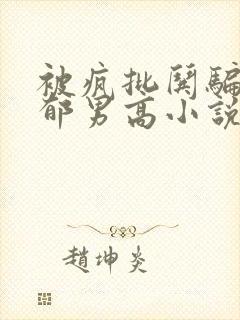 被疯批鬨騙
郁男高小説
趙坤炎